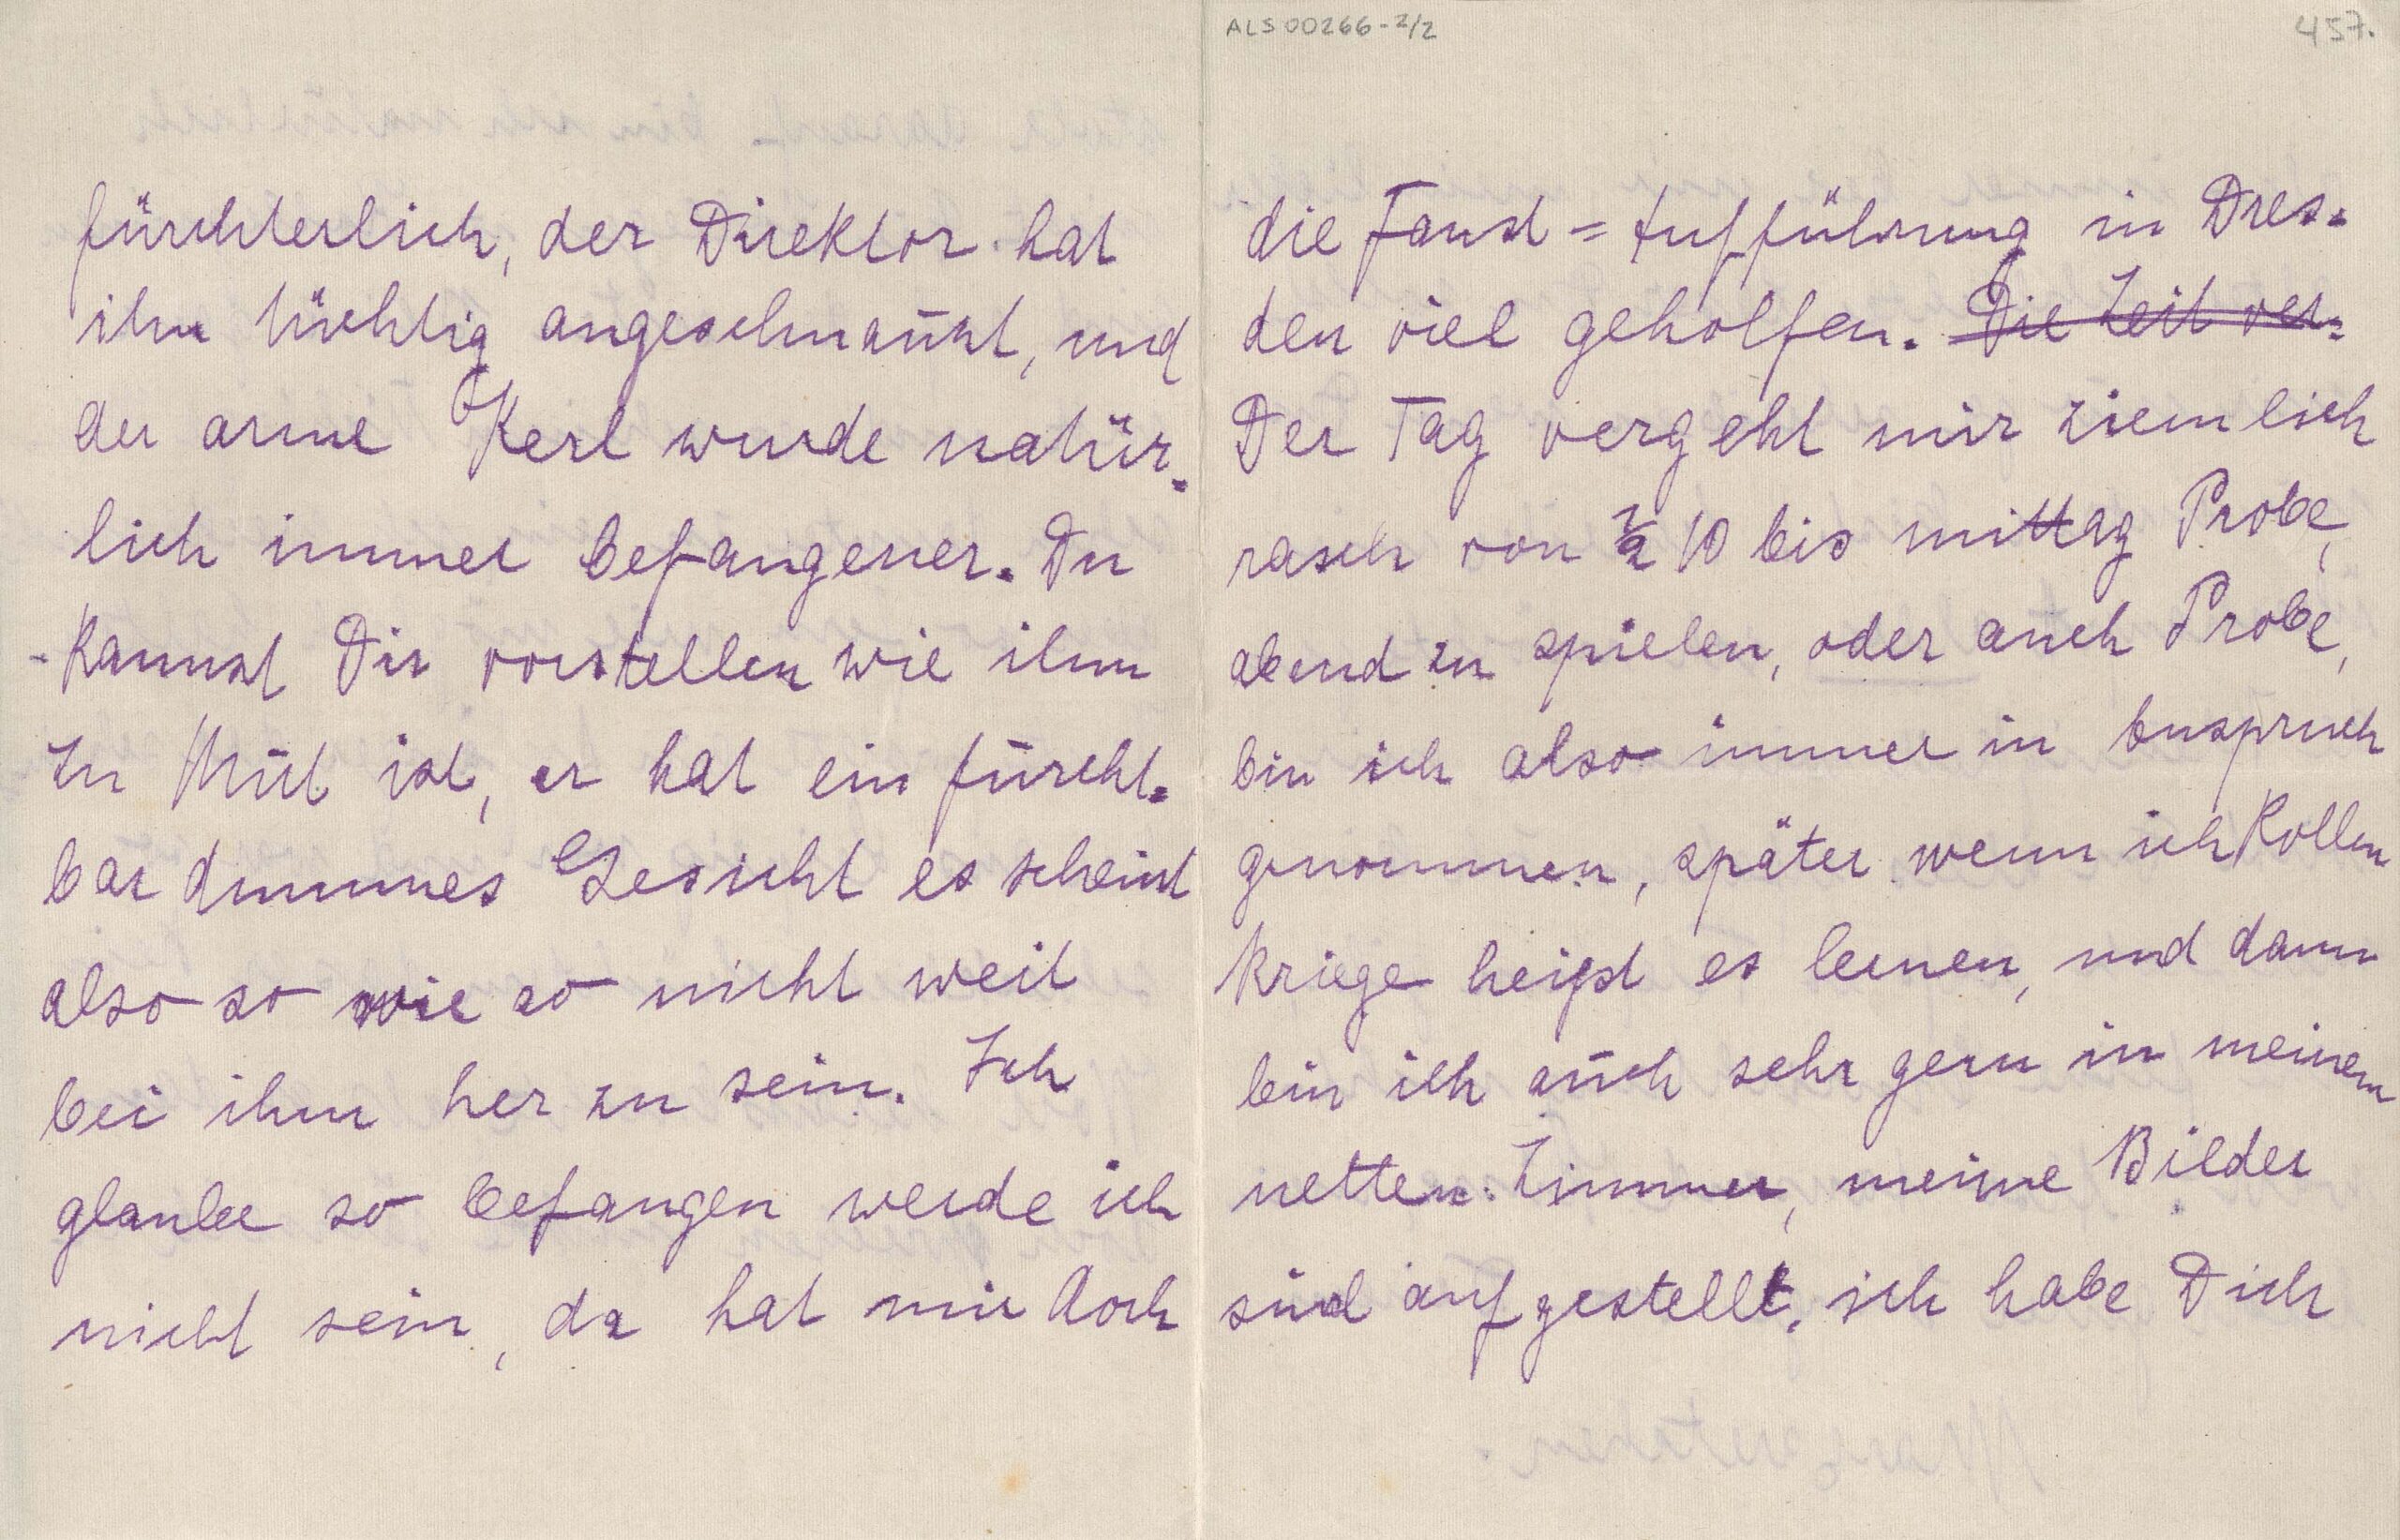 ALS00266-2/2
457.
fürchterlich, der Direktor hat
ihn tüchtig angeschnauzt, und
der arme Kerl wurde natür=
lich immer befangener. Du
kannst Dir vorstellen wie ihm
zu Mut ist, er hat ein furcht=
bar dummes Gesicht es scheint
also so wie so nicht weit
bei ihm her zu sein. Ich
glaube so befangen werde ich
nicht sein, da hat mir doch
die Faust=Aufführung in Dres=
den viel geholfen. Die Zeit ver=
Der Tag vergeht mir ziemlich
rasch von ½ 10 bis mittag Probe,
abend zu spielen, oder auch Probe,
bin ich also immer in Anspruch
genommen, später wenn ich Rollen
kriege heißt es lernen, und dann
bin ich auch sehr gern in meinem
netten Zimmer, meine Bilder
sind aufgestellt, ich habe Dich